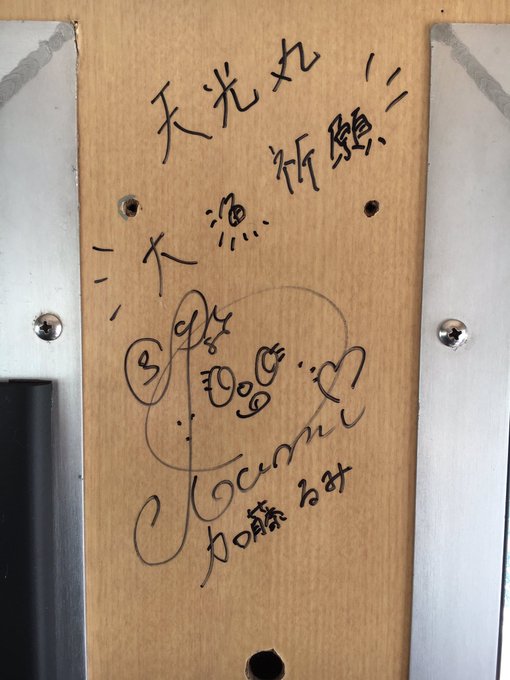 天光丸
大漁祈願
Rumi
加藤るみ